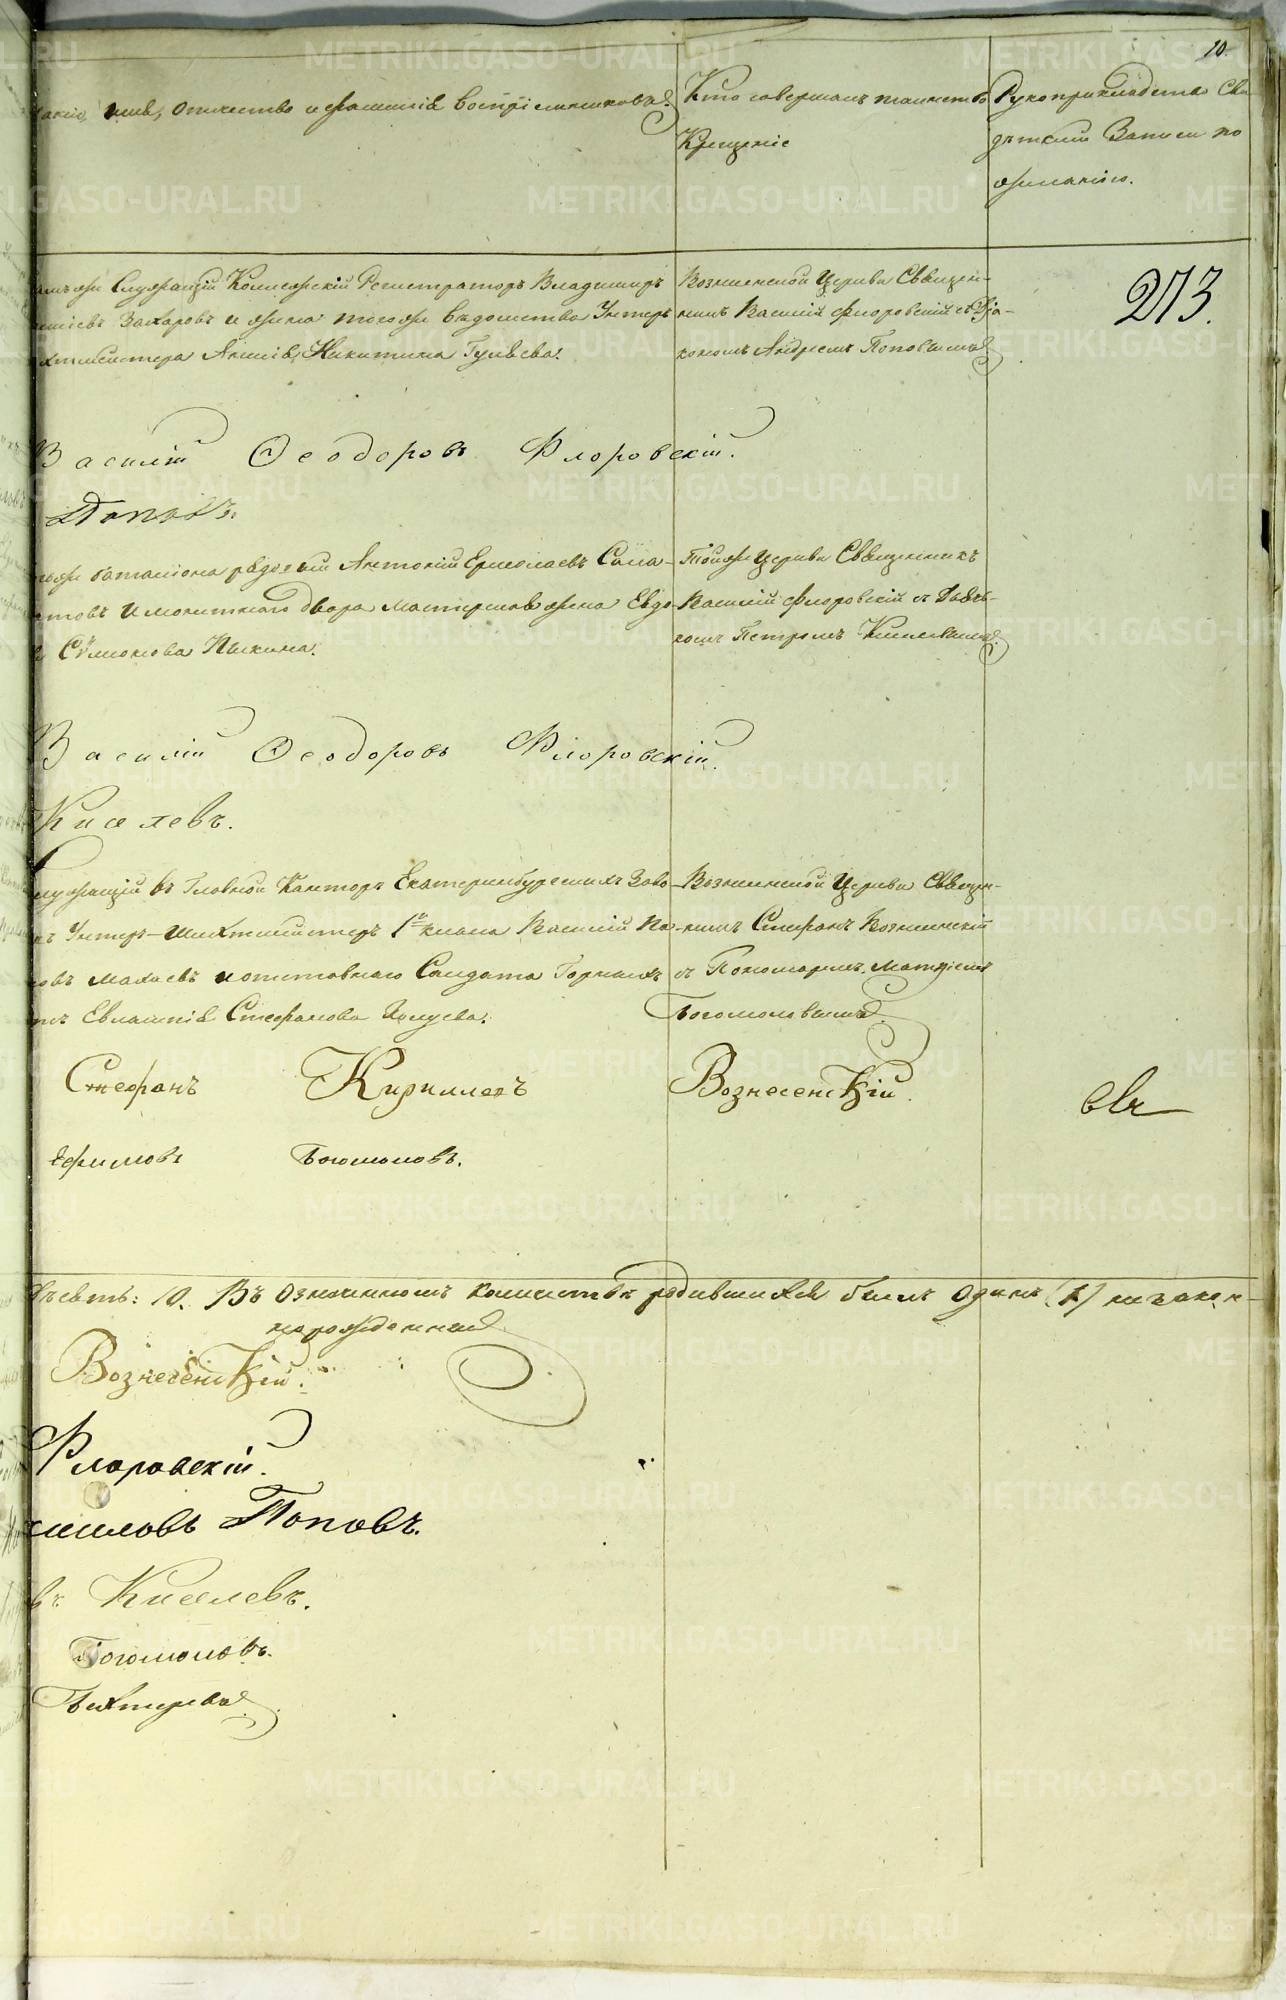 10.
Званіе, имя, отчество и фамилія воспріемниковъ.
Кто совершалъ таинство
Крещенія
Рукоприкладство Сви
дѣтелей Записи по
желанію.
Служащій Коллежскій Регистраторъ Владиміръ
Захаровъ и жена того же вѣдомства Унтеръ
Никитина Гуляева.
Вознесенской Церкви Священ-
никъ Василій Флоровскій съ Діа-
кономъ Андреемъ Поповымъ
273.
Василій Ѳеодоровъ Флоровскій.
Поповъ.
баталіона рядовый Антоній Ермолаевъ Сала-
товъ и монетнаго двора мастерова жена Евдо-
Сѵмонова Пыхина.
Тойже Церкви Священникъ
Василій Флоровскій съ Дьяч-
комъ Петромъ Киселевымъ.
Василій Ѳеодоровъ Флоровскій.
Киселевъ.
Служащій въ Главной Канторѣ Екатеринбургскихъ Заво-
Унтеръ-шихтмейстеръ 1го класа Василій Па-
ловъ Махаевъ и отставнаго Солдата Горныхъ
Евлампія Стефанова
Вознесенской Церкви Священ-
никъ Стефанъ Вознесенскій
съ Пономаремъ Матѳіемъ
Богомоловымъ.
Стефанъ Кирилловъ Вознесенскій.
Ефимовъ Богомоловъ.
Десять: 10. Въ означенномъ количествѣ родившихся былъ одинъ (1) незакон-
норожденный
Вознесенскій.
Флоровскій.
Поповъ.
въ Киселевъ.
Богомоловъ.
Бехтеревъ.